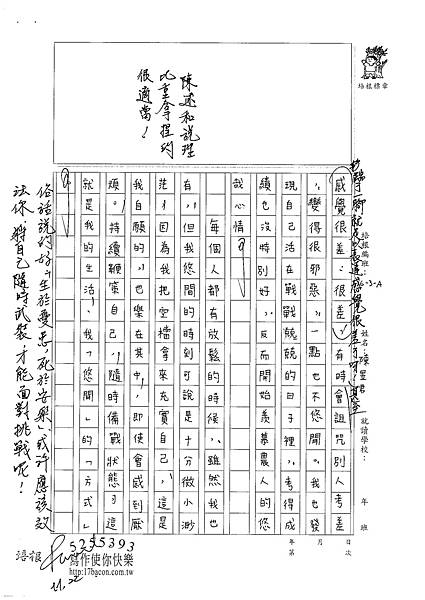 培根標章
陳述和說理
比重拿捏的
很適當！
感覺很差，很差，有時會詛咒別人考差
，變得很邪惡，一點也不悠閒。我也發
現自己活在戰戰兢兢的日子裡，考得成
績也沒特別好，反而開始羨慕農人的悠
哉心情。
每個人都有放鬆的時候，雖然我也
有，但我悠閒的時刻可說是十分微小渺
茫，因為我把空檔拿來充實自己，這是
我自願的，也樂在其中，即使會感到厭
煩。持續鞭策自己，隨時備戰狀態，這
就是我的生活，我「悠閒」的「方式」
。
俗話說的好：「生於憂患，死於安樂」或許應該效
法你，將自己隨時武裝才能面對挑戰呢！
培根編班：
姓名
就讀學校：
年 班
年 月 日
第 次
培根
5255393
寫作使你快樂
http://17bacon.com.tw/
11.22